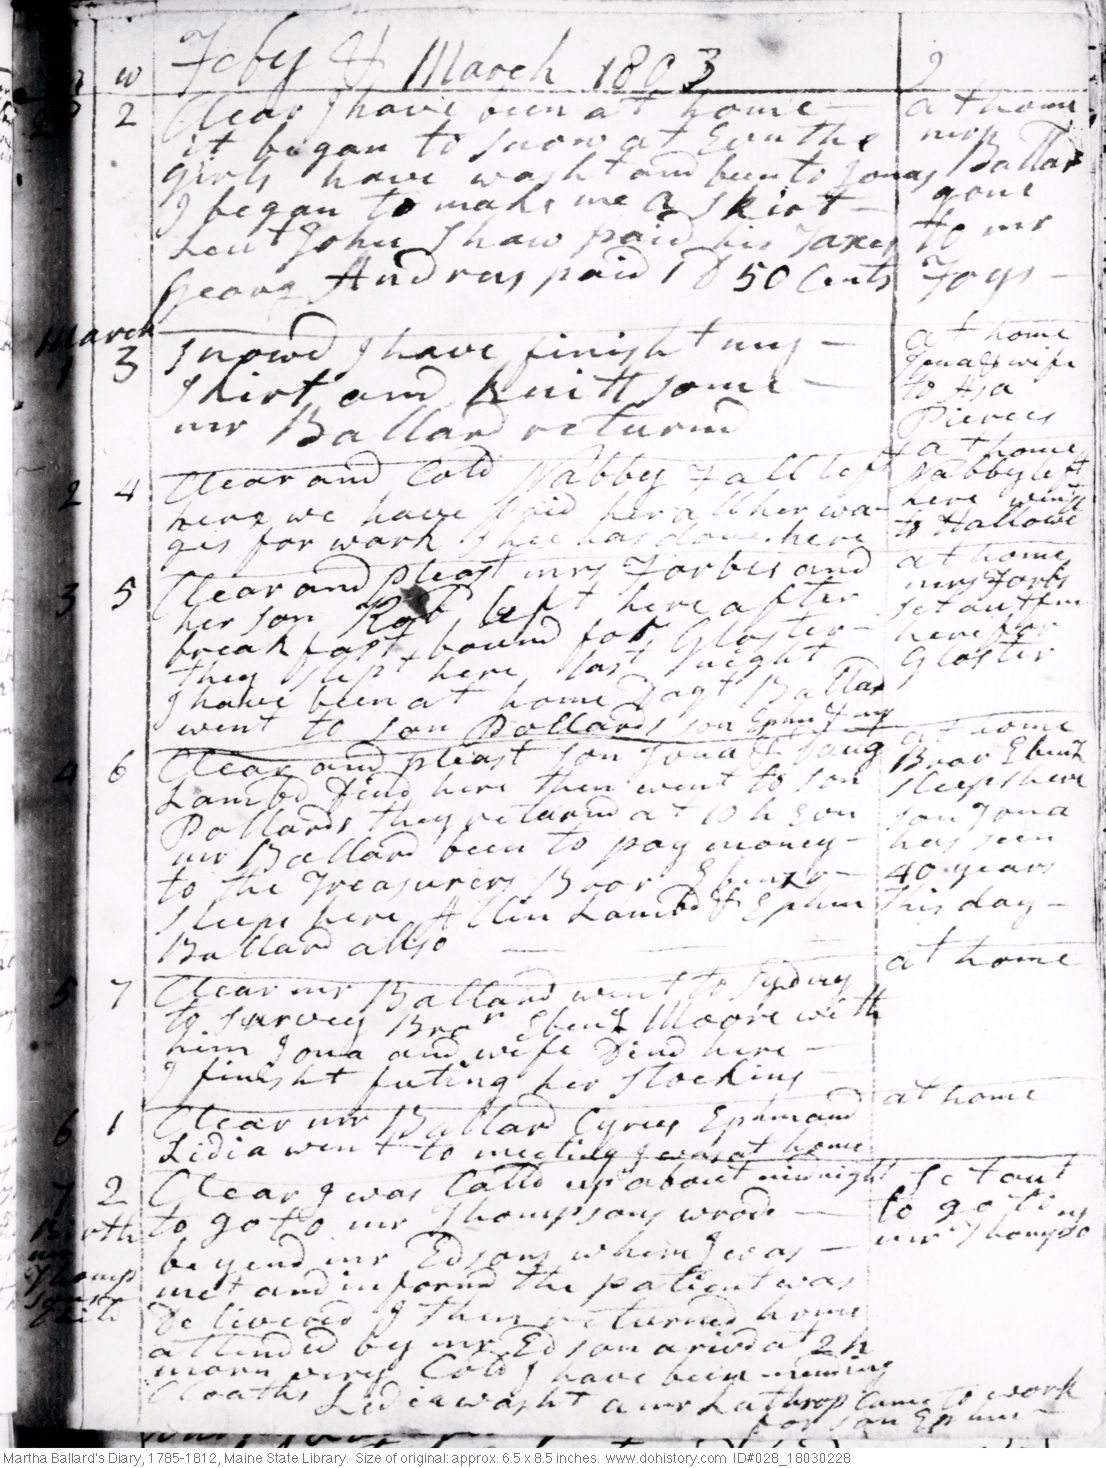 Feby & March 1803
28 2 Clear I have been at home – at home
it began to snow at Evn the mrs Ballard
girls have washt and been to Jonas gone
I began to make me a skirt – to mr
Leut John Shaw paid his Taxes Foys –
Georg Andrus paid 1 D 50 Cents
March
1 3 Snowd I have finisht my – at home
skirt and knitt some – Jonas wife
mr Ballard returnd to Asa
Pierces
2 4 Clear and Cold Nabby Fall left at home
here we have paid her all her wa- Nabby left
ges for work shee has done here here went
to Hallowe
3 5 Clear and pleast mrs Forbes and at home
her son Rob left here after mrs Forbs
breakfast, bound for Gloster – set out from
they slept here last night here for
I have been at home Dagt Ballard Gloster
went to son Pollards son Ephm
4 6 Clear and pleast son Jona & at home
Lambd Dind here then went to son Bror Ebenz
Pollards they returnd at 10 h Evn sleeps here
mr Ballard been to pay money – son Jona
to the Treasurers Bror Ebenzr – has seen
sleeps here Allin Lambd & Ephm 40 years
Ballard allso — this day –
5 7 Clear mr Ballard went to Sydny at home
to survey Bror Ebenz Moore with
him Jona and wife Dind here –
I finisht futing her stockins –
6 1 Clear mr Ballard Cyrus Ephm and at home
Lidia went to meeting I was at home
7 2 Clear I was Calld up about midnight set out
to go to mr Thompsons wrode – to go to
Birth beyond mr Edsons whim I was – mr Thompso
met and informd the patient was
Thomp Deliverd I then returnd home
sons attended by mr Edson arivd at 2 h
Child morn very Cold I have been mending
Cloaths Lidia washt a mr Lathrop Came to work
for son Ephm –
Martha Ballard's Diary, 1785-1812, Maine State Library. Size of original: approx. 6.5 x 8.5 inches. www.dohistory.com ID#028_18030228